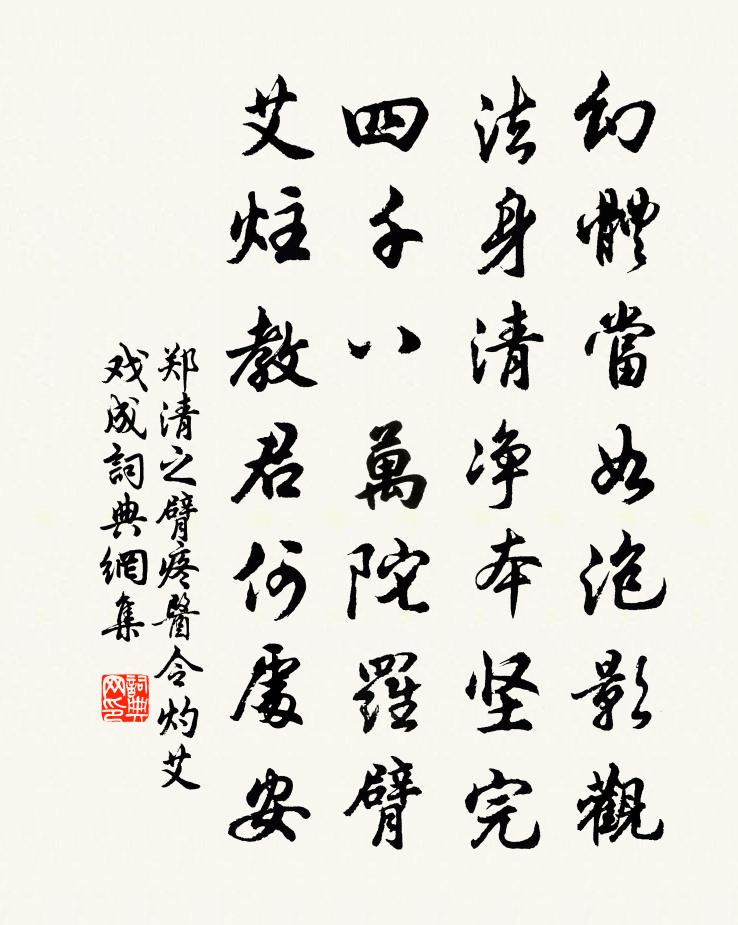 幻體當如泡影觀
法身清净本坚完
四千八萬陀羅臂
艾炷教君何處安
郑清之臂疼醫令灼艾
戏成詞典網集
詞典网印